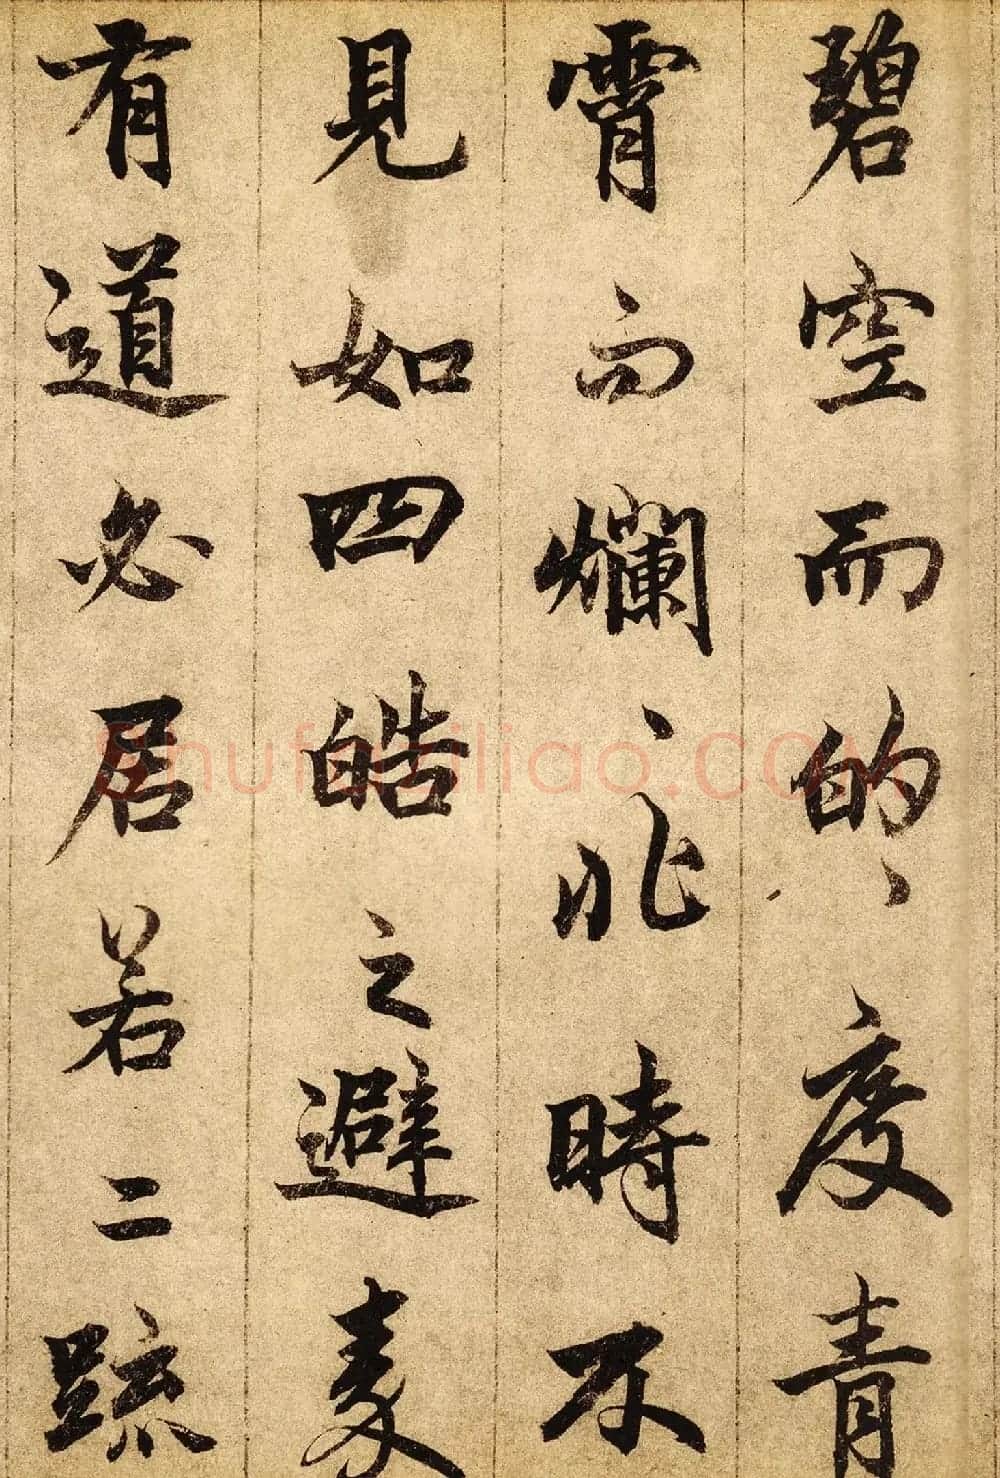 碧空而的〻度青
霄而爛〻非時不
見如四皓之避秦
有道必居若二疏
Shufaziliao.COM